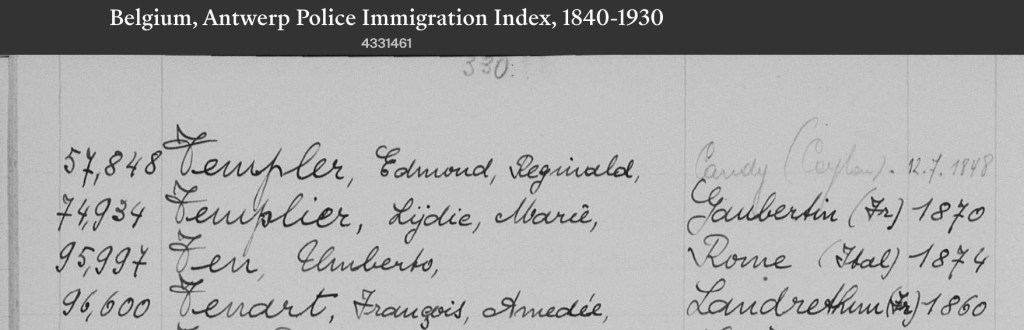 Belgium, Antwerp Police Immigration Index, 1840-1930
4331461
330.
57,848 Templer, Edmond, Reginald, Candy (Ceylan). 12.7.1848
74,934 Templier, Lÿdie, Marie, Gaubertin (Fr) 1870
95,997 Ten, Umberto, Rome (Ital) 1874
96,600 Tenart, François, Amedée, Landrethun (Fr) 1860